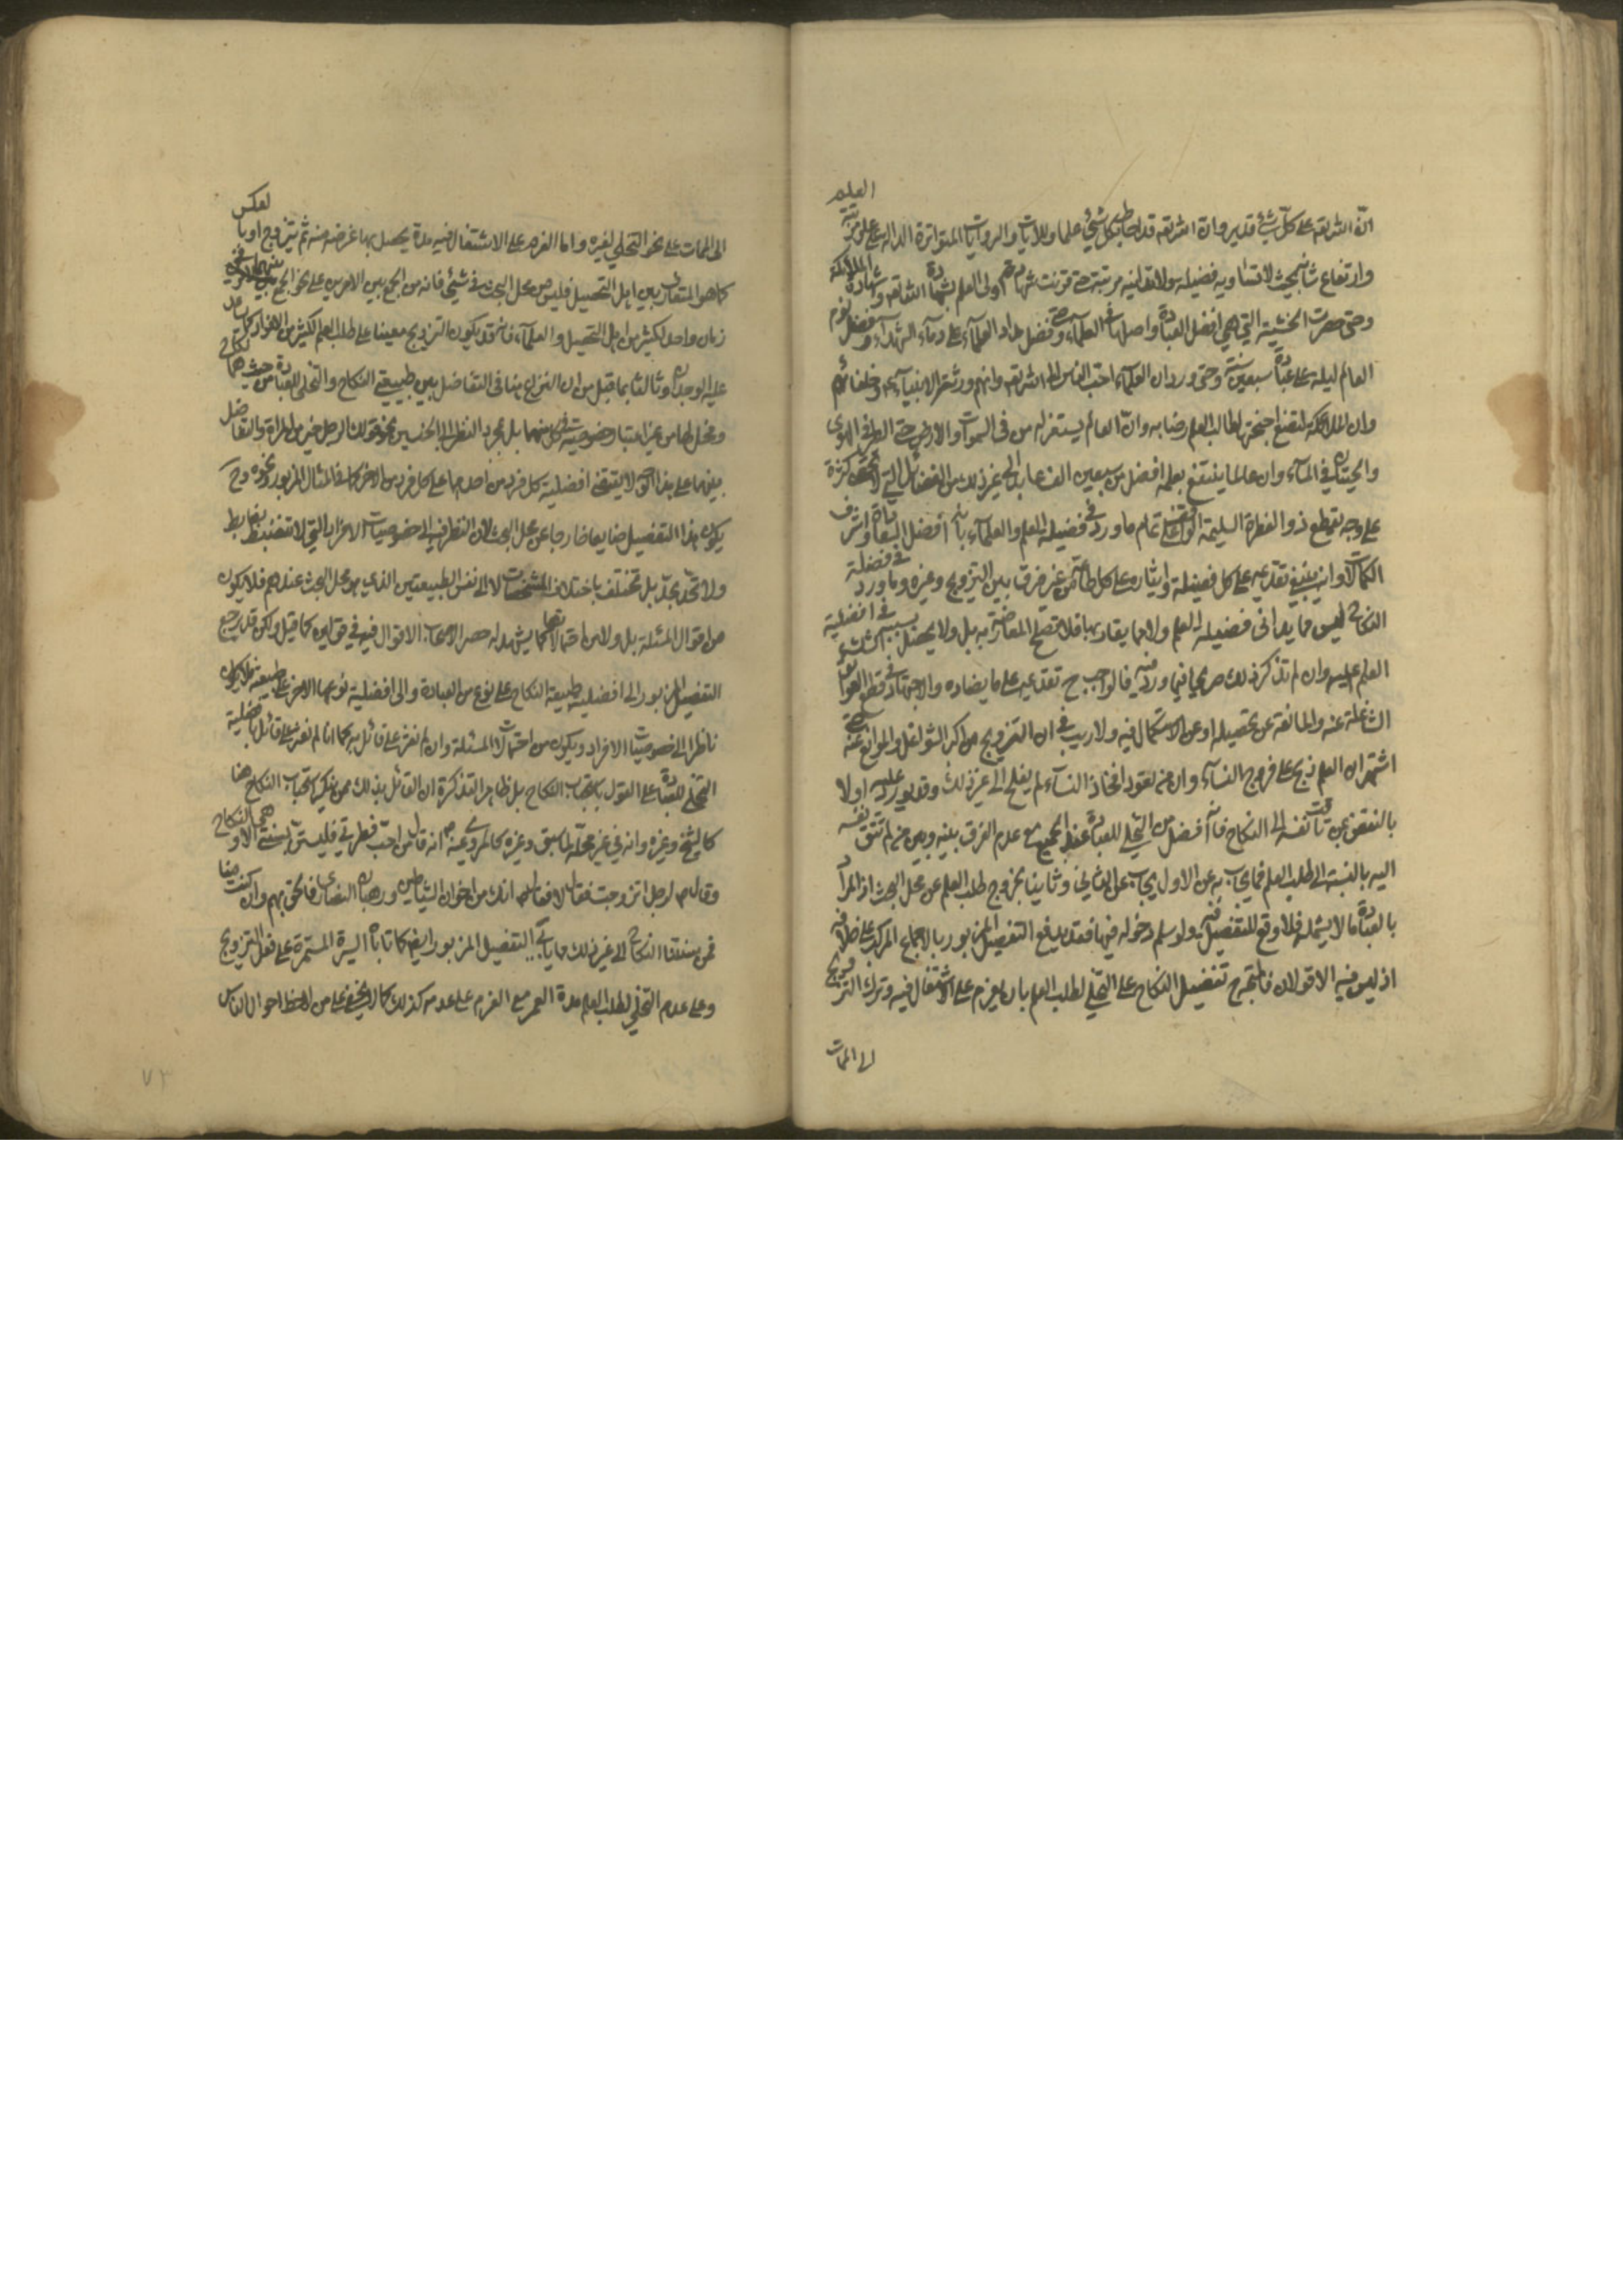 العلم
انّ الله تعالى على كلّ شيء قدير وان الله تعالى قد احاط بكل شيء علما وللآيات والروايات المتواترة الدالة على علو مرتبته
وارتفاع شأنه بحيث لا تساويه فضيلة ولا تدانيه مرتبة حتى قرنت شهادة اولى العلم بشهادة الله تعالى وشهادة الملائكة
وحتى حصرت الخشية التي هي افضل العبادة واصلها في العلماء وفضل مداد العلماء على دماء الشهداء وفضل نوم
العالم ليلة على عبادة سبعين سنة وحتى ورد ان العلماء احب الناس الى الله تعالى وانهم ورثة الانبياء وخلفائهم
وان الملائكة لتضع اجنحتها لطالب العلم رضا به وانّ العالم يستغفر له من في السموات والارض حتى الطير في الهوى
والحيتان في الماء وان عالما ينتفع بعلمه افضل من سبعين الف عابد الى غير ذلك من الفضائل التي لا تحصى كثرة
على وجه يقطع ذو الفطرة السليمة الواقف على تمام ما ورد في فضيلة العلم والعلماء بانه افضل السعادات واشرف
الكمالات وانه ينبغي تقديمه على كل فضيلة وايثاره على كل طاعة من غير فرق بين التزويج وغيره وما ورد في فضيلة
النكاح ليس مما يدانى فضيلة العلم ولا مما يقاربها فلا تصلح المعارضة به بل ولا يحصل بسببه الشك في افضلية
العلم عليه وان لم تذكر ذلك صريحا فيما ورد فيه فالواجب ح تقديمه على ما يضاده والاجتهاد في قطع العوايق
الشاغلة عنه والمانعة عن تحصيله او عن الاستكمال فيه ولا ريب في ان التزويج من اكبر الشواغل والموانع عنه حتى
اشتهر ان العلم ذبح على فروج النساء وان من تعود افخاذ النساء لم يفلح الى غير ذلك وقد يورد عليه اولا
بالنقض بمن تاقت نفسه الى النكاح فانه افضل من التخلي للعبادة عند الجميع مع عدم الفرق بينه وبين من لم تتق نفسه
اليه بالنسبة الى طلب العلم فما يجاب به عن الاول يجاب عن الثاني وثانيا بخروج طلب العلم عن محل البحث اذ المراد
بالعبادة ما لا يشمله فلا وقع للتفصيل فيه ولو سلم دخوله فيها فقد يدفع التفصيل المزبور بالاجماع المركب على خلافه
اذ ليس فيه الا قولان فالمتجه ح تفضيل النكاح على التخلي لطلب العلم بان يعزم على الاشتغال فيه وترك التزويج
الى الممات
الى الممات على نحو التخلي لغيره واما العزم على الاشتغال فيه مدة يحصل بها غرضه منه ثم يتزوج او بالعكس
كما هو المتعارف بين اهل التحصيل فليس من محل البحث في شيء فانه من الجمع بين الامرين على نحو الجمع بينهما في
زمان واحد لكثير من اهل التحصيل والعلماء فانه قد يكون التزويج معينا على طلب العلم لكثير من الافراد كما يدل
عليه الوجدان وثالثا بما قيل من ان النزاع هنا في التفاضل بين طبيعتي النكاح والتخلي للعبادة من حيث هما
من غير اعتبار خصوصية في كل منهما بل بمجرد النظر الى الجنسين نحو قولك الرجل خير من المراة والتفاضل
بينهما على هذا النحو لا يقتضي افضلية كل فرد من احدهما على كل فرد من الاخر كما في المثال المزبور ونحوه وح
يكون هذا التفصيل ضايعا خارجا عن محل البحث لان النظر فيه الى خصوصيات الافراد التي لا تنضبط بضابط
ولا تحد بحد بل تختلف باختلاف المشخصات لا الى نفس الطبيعتين الذي هو محل البحث عندهم فلا يكون
من اقوال المسئلة بل ولا من احتمالاتها كما يشهد له حصر الاصحاب الاقوال فيه في قولين كما قيل ولكن قد يرجع
التفصيل المزبور الى افضلية طبيعة النكاح على نوع من العبادة والى افضلية نوعها الاخر على طبيعته فلا يكون
ناظرا الى خصوصيات الافراد ويكون من احتمالات المسئلة وان لم نعثر على قائل به كما انا لم نعثر على قائل بافضلية
التخلي للعبادة على القول باستحباب النكاح بل ظاهر التذكرة ان القائل بذلك ممن ينكر استحباب النكاح هنا
كالشيخ وغيره وانه في غير محله لما سبق وغيره كالمروي عنه ص انه قال من احب فطرتي فليستن بسنتي الا وهي النكاح
وقال ص لرجل اتزوجت فقال لا فقال له انك من اخوان الشياطين ورهبان النصارى فالحق بهم وان كنت منا
فمن سنتنا النكاح الى غير ذلك مما يابى التفصيل المزبور ايضا كما تاباه السيرة المستمرة على فعل التزويج
وعلى عدم التخلي لطلب العلم مدة العمر مع العزم على عدمه كذلك كما لا يخفى على من لاحظ احوال الناس
٧٣